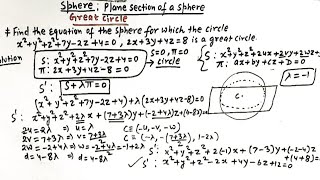 Sphere: Plane section of a sphere
Great Circle
# Find the equation of the sphere for which the circle
x²+y²+z²+7y-2z+4=0, 2x+3y+4z=8 is a great circle.
Solution
S: x²+y²+z²+7y-2z+4=0
π: 2x+3y+4z-8=0
S=0, π=0
circle
S: x²+y²+z²+2ux+2vy+2wz+
π: ax+by+cz+D=0
S': S+λπ=0
λ=-1
(x²+y²+z²+7y-2z+4)+λ(2x+3y+4z-8)=0
S': x²+y²+z²+2λx+(7+3λ)y+(-2+4λ)z+(4-8λ)=0
C.
2u=2λ ⇒ u=λ
2v=7+3λ ⇒ v=(7+3λ)/2
2w=-2+4λ ⇒ w=(-2+4λ)/2=-1+2λ
d=4-8λ ⇒ d=4-8λ
C≡(-u,-v,-w)
C≡(-λ, -(7+3λ)/2, 1-2λ)
S': x²+y²+z²+2(-1)x+(7-3)y+(-2-4)z
+(4+8)=0
✓S': x²+y²+z²-2x+4y-6z+12=0